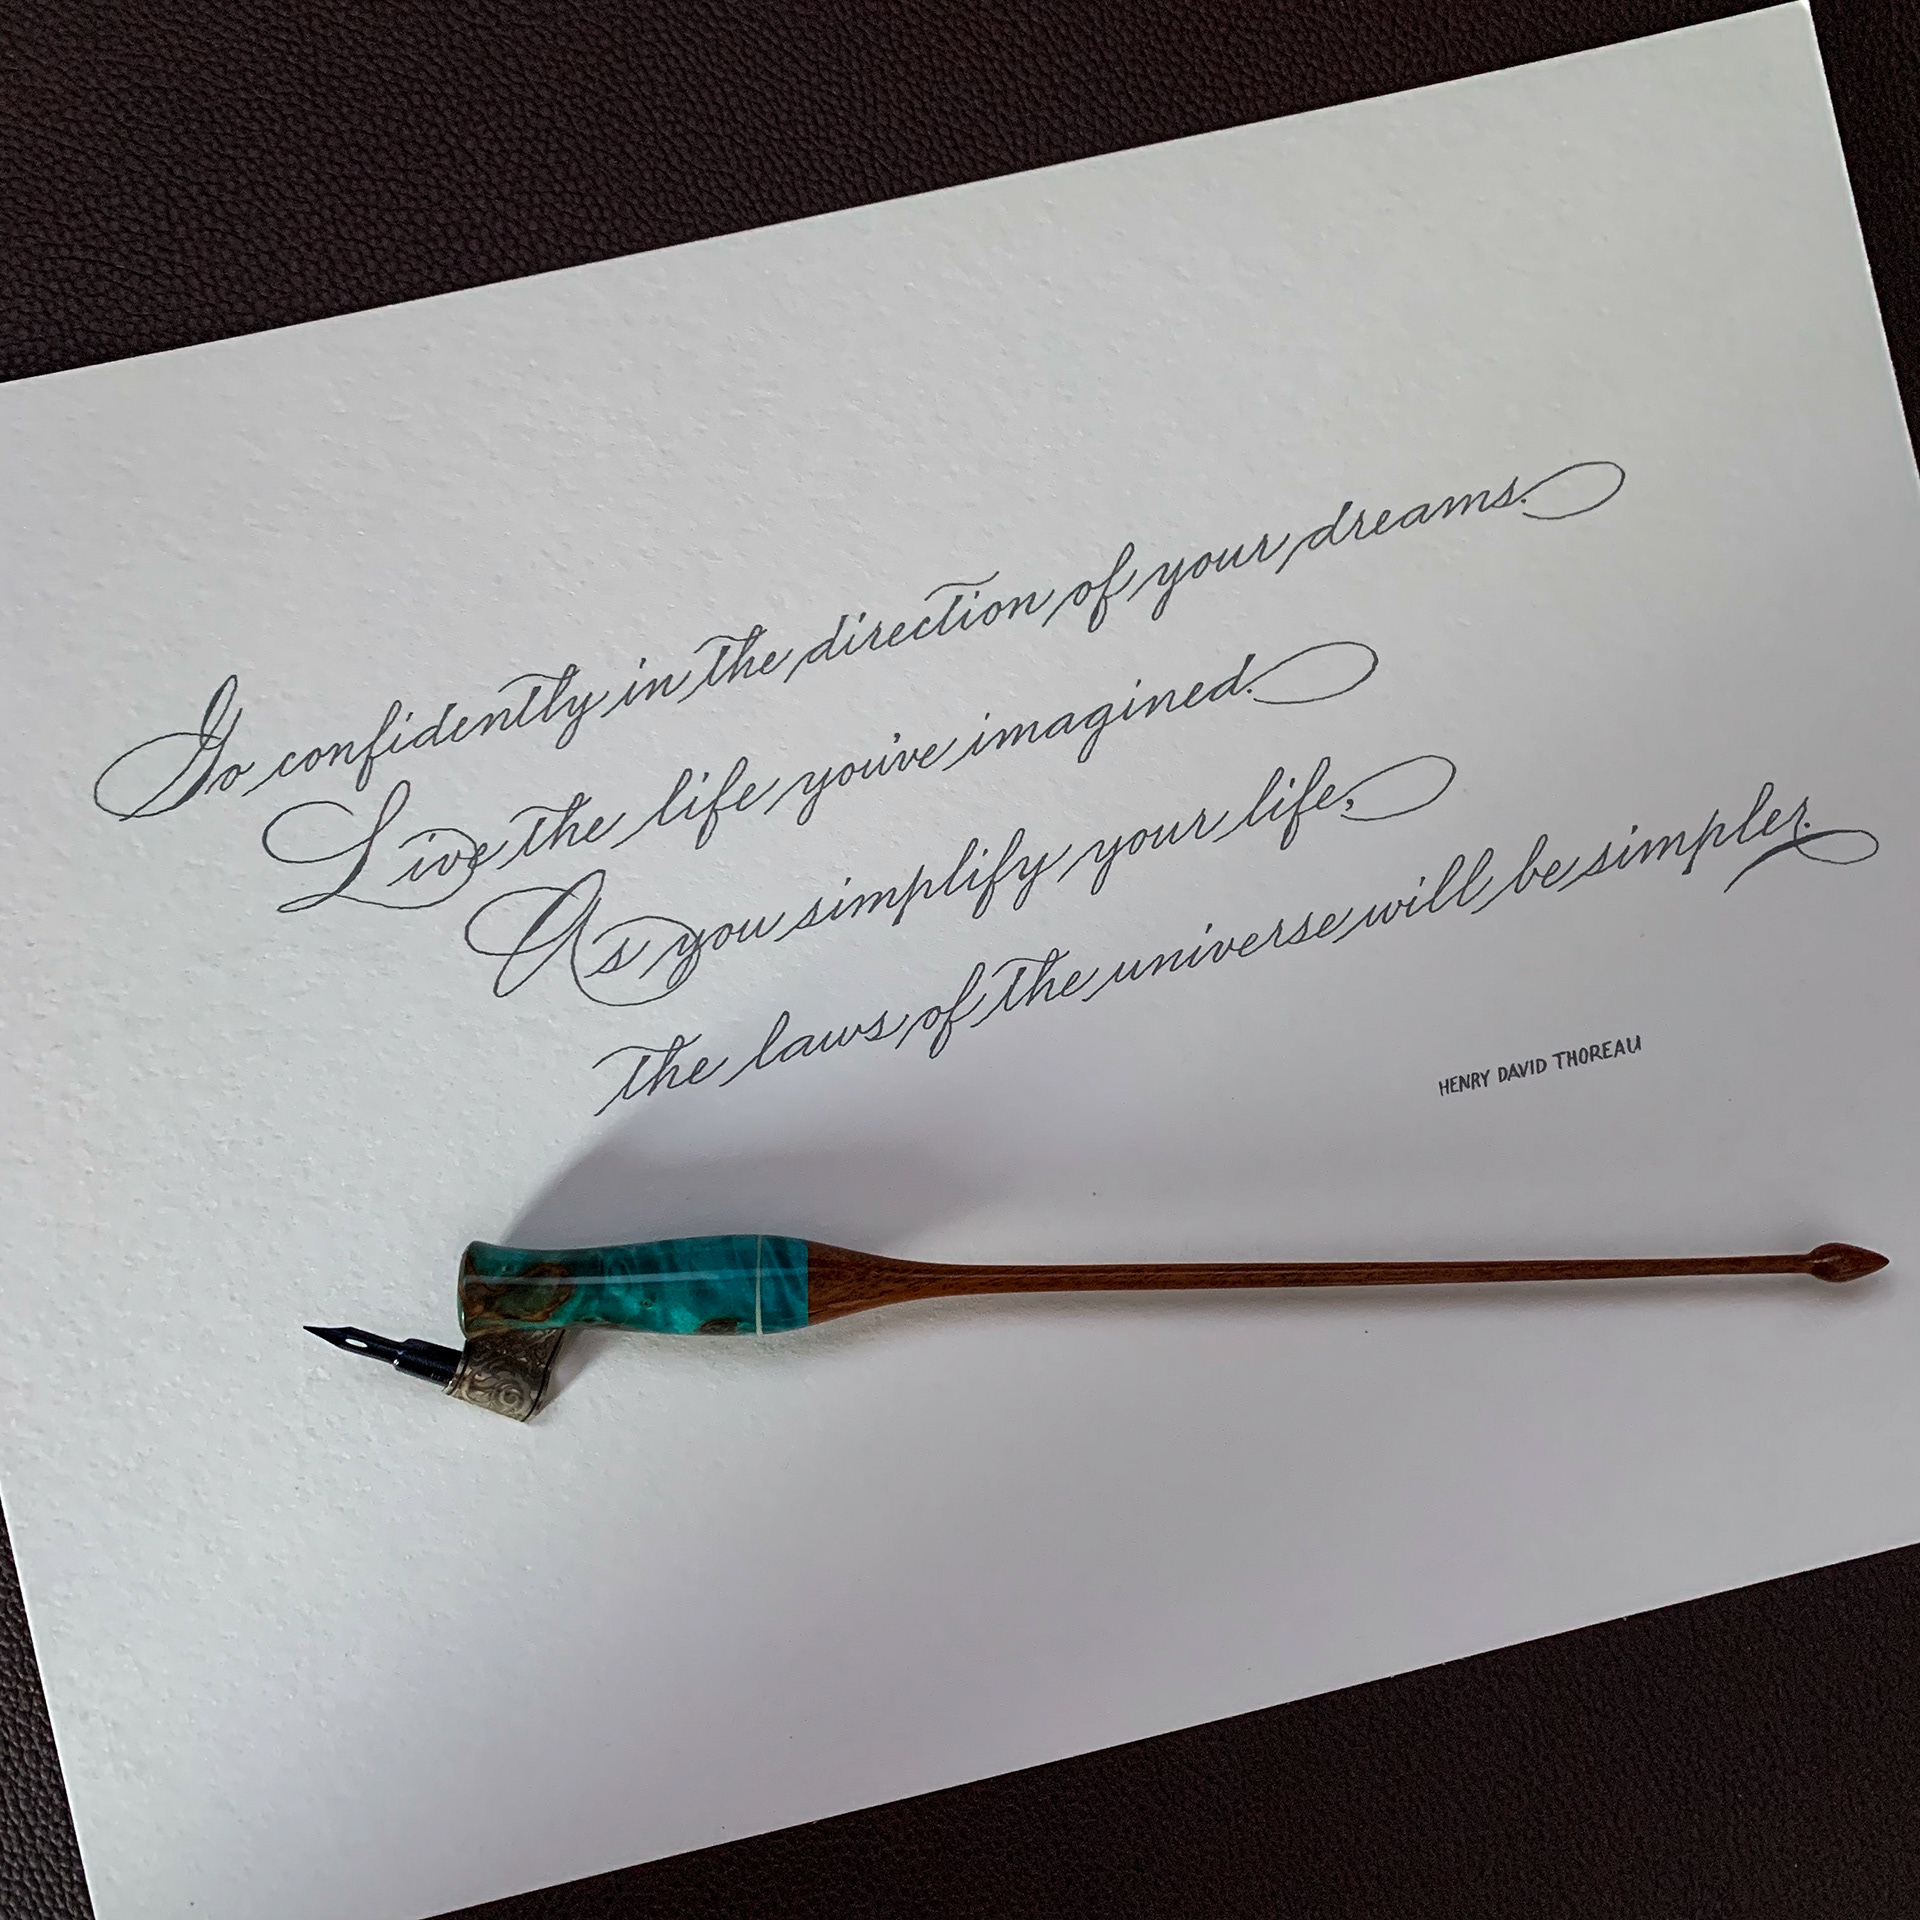 Go confidently in the direction of your dreams.
Live the life you've imagined.
As you simplify your life,
the laws of the universe will be simpler.
HENRY DAVID THOREAU